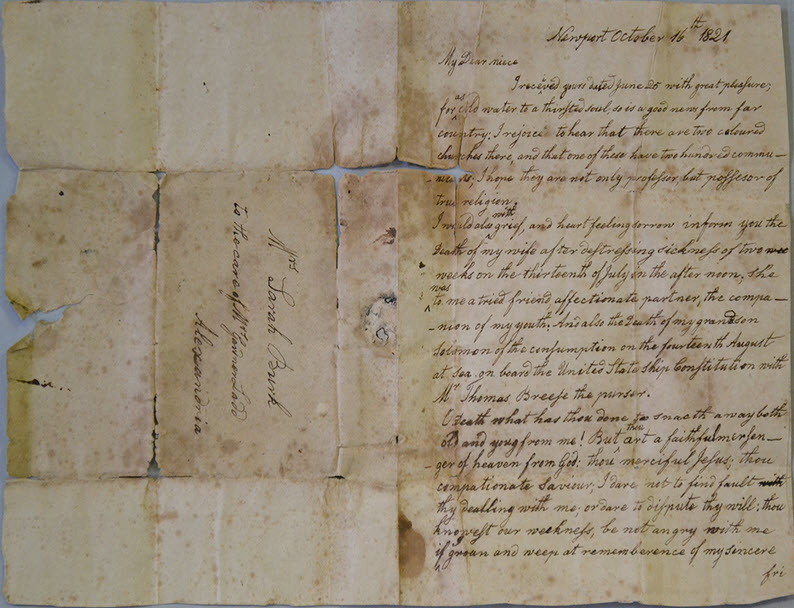 Newport October 16th 1821
My Dear niece
I received yours dated June 25 with great pleasure;
for as cold water to a thirsted soul, so is a good news from far
country: I rejoice to hear that there are two coloured
churches there, and that one of these have two hundred commu-
-nicants; I hope they are not only professor, but possesor of
true religion.
I would also with grief, and heart feeling sorrow inform you the
Death of my wife after destressing sickness of two wee
weeks on the thirteenth of July in the after noon, she
was to me a tried friend, affectionate partner, the compa-
-nion of my youth. And also the Death of my grandson
Solomon of the consumption on the fourteenth August
at sea on board the United State ship Constitution with
Mr Thomas Breese the purser.
O Death what has thou done to snacth away both
old and youg from me! But thou art a faithful messen-
-ger of heaven from God: thou merciful Jesus; thou
compationate saviour; I dare not to find fault with
thy dealling with me, or dare to dispute thy will; thou
knowest our weekness, be not angry with me
if I groan and weep at rememberence of my sincere
fri
Mrs Sarah Burk
to the care of Mrs
Alexandria